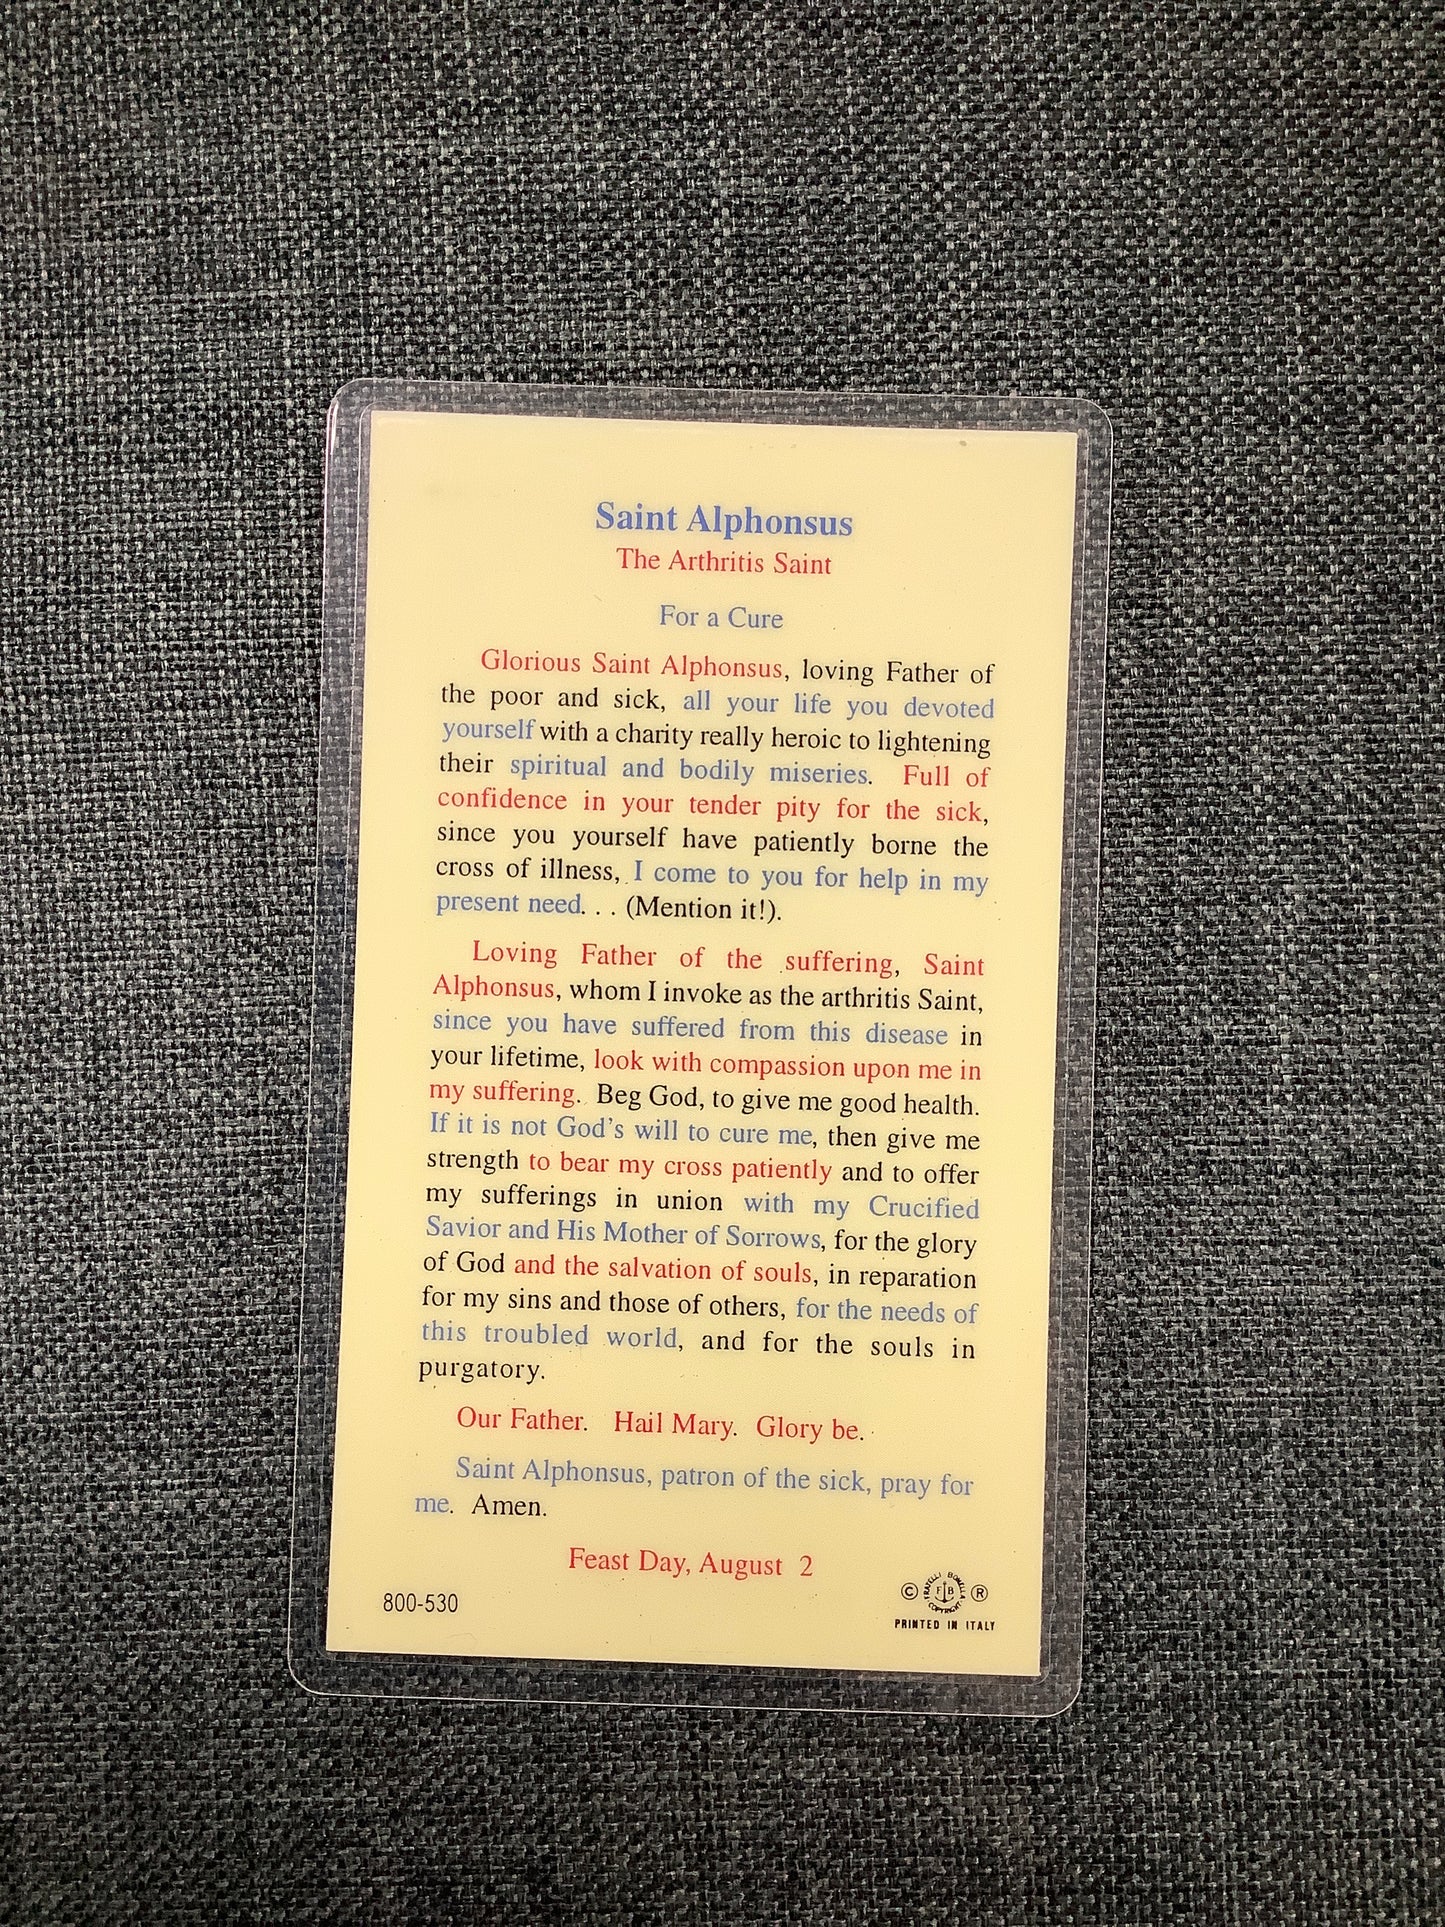 Saint Alphonsus
The Arthritis Saint
For a Cure
Glorious Saint Alphonsus, loving Father of
the poor and sick, all your life you devoted
yourself with a charity really heroic to lightening
their spiritual and bodily miseries. Full of
confidence in your tender pity for the sick,
since you yourself have patiently borne the
cross of illness, I come to you for help in my
present need. . . (Mention it!).
Loving Father of the suffering, Saint
Alphonsus, whom I invoke as the arthritis Saint,
since you have suffered from this disease in
your lifetime, look with compassion upon me in
my suffering. Beg God, to give me good health.
If it is not God's will to cure me, then give me
strength to bear my cross patiently and to offer
my sufferings in union with my Crucified
Savior and His Mother of Sorrows, for the glory
of God and the salvation of souls, in reparation
for my sins and those of others, for the needs of
this troubled world, and for the souls in
purgatory.
Our Father. Hail Mary. Glory be.
Saint Alphonsus, patron of the sick, pray for
me. Amen.
Feast Day, August 2
800-530
© FRATELLI BONELLA FB COPYRIGHT ®
PRINTED IN ITALY